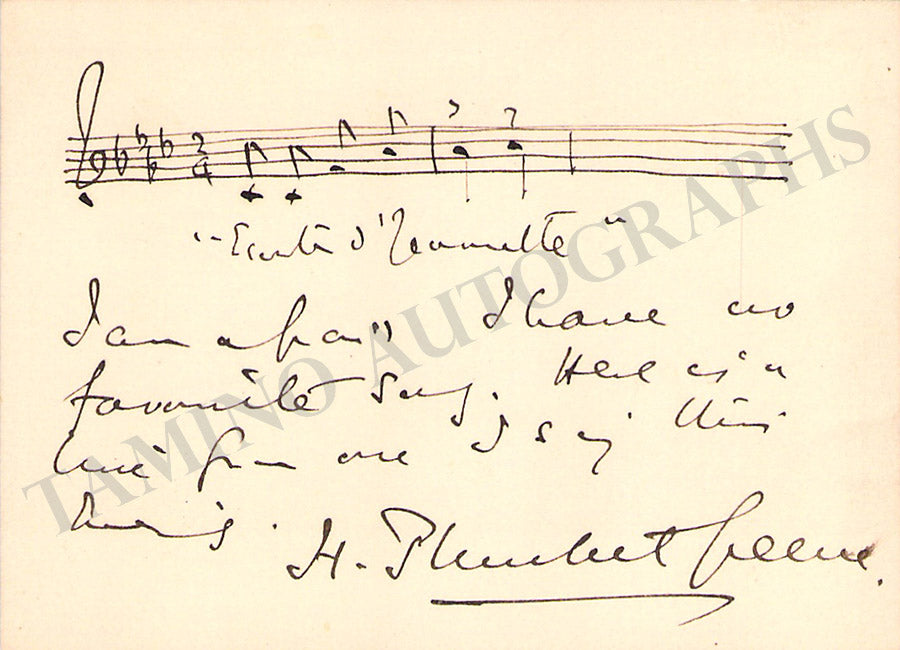 2
4
"Ecoute d'Jeannette"
I am afraid I have no
favourite song. Here is a
line from one I sing this
H. Plunket Greene.
TAMINO AUTOGRAPHS